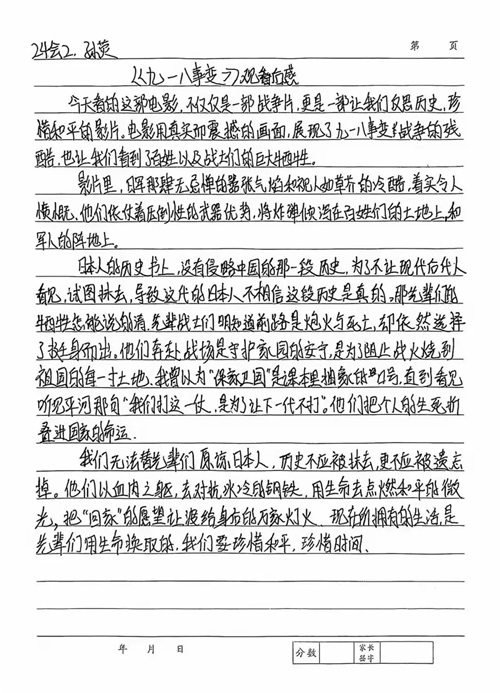 第 页
24会2. 孙英
《九一八事变》观看后感
今天看的这部电影,不仅仅是一部战争片,更是一部让我们反思历史,珍
惜和平的影片。电影用真实而震撼的画面,展现了九一八事变战争的残
酷,也让我们看到了百姓以及战士们的巨大牺牲。
影片里,日军那肆无忌惮的嚣张气焰和视人如草芥的冷酷,着实令人
愤慨。他们依仗着压倒性的武器优势,将炸弹倾泻在百姓们的土地上,和
军人的阵地上。
日本人的历史书上,没有侵略中国的那一段历史,为了不让现代后代人
看见,试图抹去,导致这代的日本人不相信这段历史是真的。那先辈们的
牺牲怎能说的清,先辈战士们明知道前路是炮火与死亡,却依然选择
了挺身而出。他们奔赴战场是守护家园的安宁,是为了阻止战火烧到
祖国的每一寸土地、我曾以为“保家卫国”是课本里抽象的口号,直到看见
听见平河那句“我们打这一仗,是为了让下一代不打”。他们把个人的生死折
叠进国家的命运.
我们无法替先辈们原谅日本人,历史不应被抹去,更不应被遗忘
掉。他们以血肉之躯,去对抗冰冷的钢铁,用生命去点燃和平的微
光,把“回家”的愿望让渡给身后的万家灯火 现在所拥有的生活,是
先辈们用生命换取的,我们要珍惜和平,珍惜时间、
年 月 日 分数 家长签字